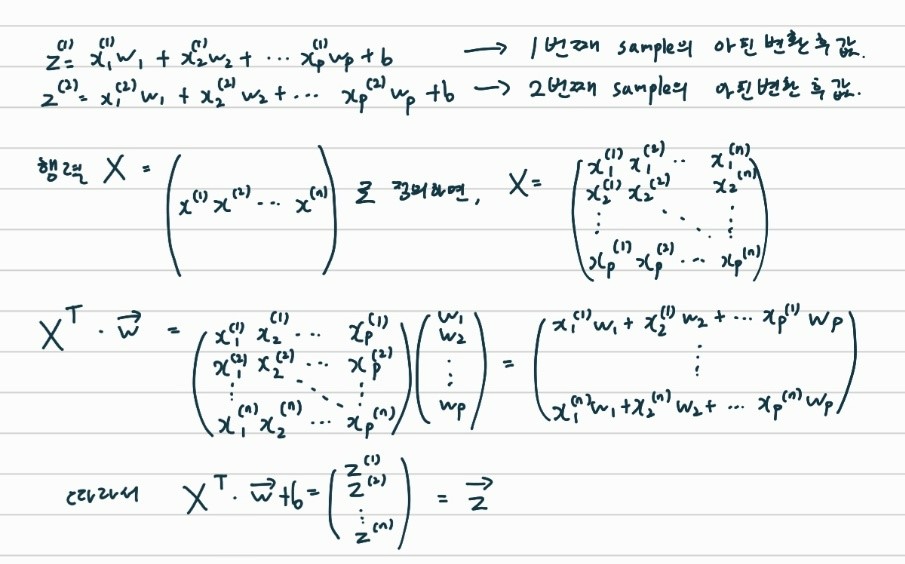 z⁽¹⁾= x₁⁽¹⁾w₁ + x₂⁽¹⁾w₂ + ⋯ xₚ⁽¹⁾wₚ + b ⟶ 1번째 sample의 아핀변환 후 값.
z⁽²⁾= x₁⁽²⁾w₁ + x₂⁽²⁾w₂ + ⋯ xₚ⁽²⁾wₚ + b ⟶ 2번째 sample의 아핀변환 후 값.
행렬 X = ( x⁽¹⁾ x⁽²⁾ ⋯ x⁽ⁿ⁾ ) 로 정의하면, X = ( x₁⁽¹⁾ x₁⁽²⁾ ⋯ x₁⁽ⁿ⁾
x₂⁽¹⁾ x₂⁽²⁾ x₂⁽ⁿ⁾
⋮ ⋱ ⋮
xₚ⁽¹⁾ xₚ⁽²⁾ ⋯ xₚ⁽ⁿ⁾ )
Xᵀ · w⃗ = ( x₁⁽¹⁾ x₂⁽¹⁾ ⋯ xₚ⁽¹⁾ ) ( w₁ ) = ( x₁⁽¹⁾w₁ + x₂⁽¹⁾w₂ + ⋯ xₚ⁽¹⁾wₚ )
x₁⁽²⁾ x₂⁽²⁾ ⋯ xₚ⁽²⁾ w₂
⋮ ⋱ ⋮ ⋮ ⋮
x₁⁽ⁿ⁾ x₂⁽ⁿ⁾ ⋯ xₚ⁽ⁿ⁾ wₚ x₁⁽ⁿ⁾w₁ + x₂⁽ⁿ⁾w₂ + ⋯ xₚ⁽ⁿ⁾wₚ
따라서 Xᵀ · w⃗ + b = ( z⁽¹⁾
z⁽²⁾
⋮
z⁽ⁿ⁾ ) = z⃗